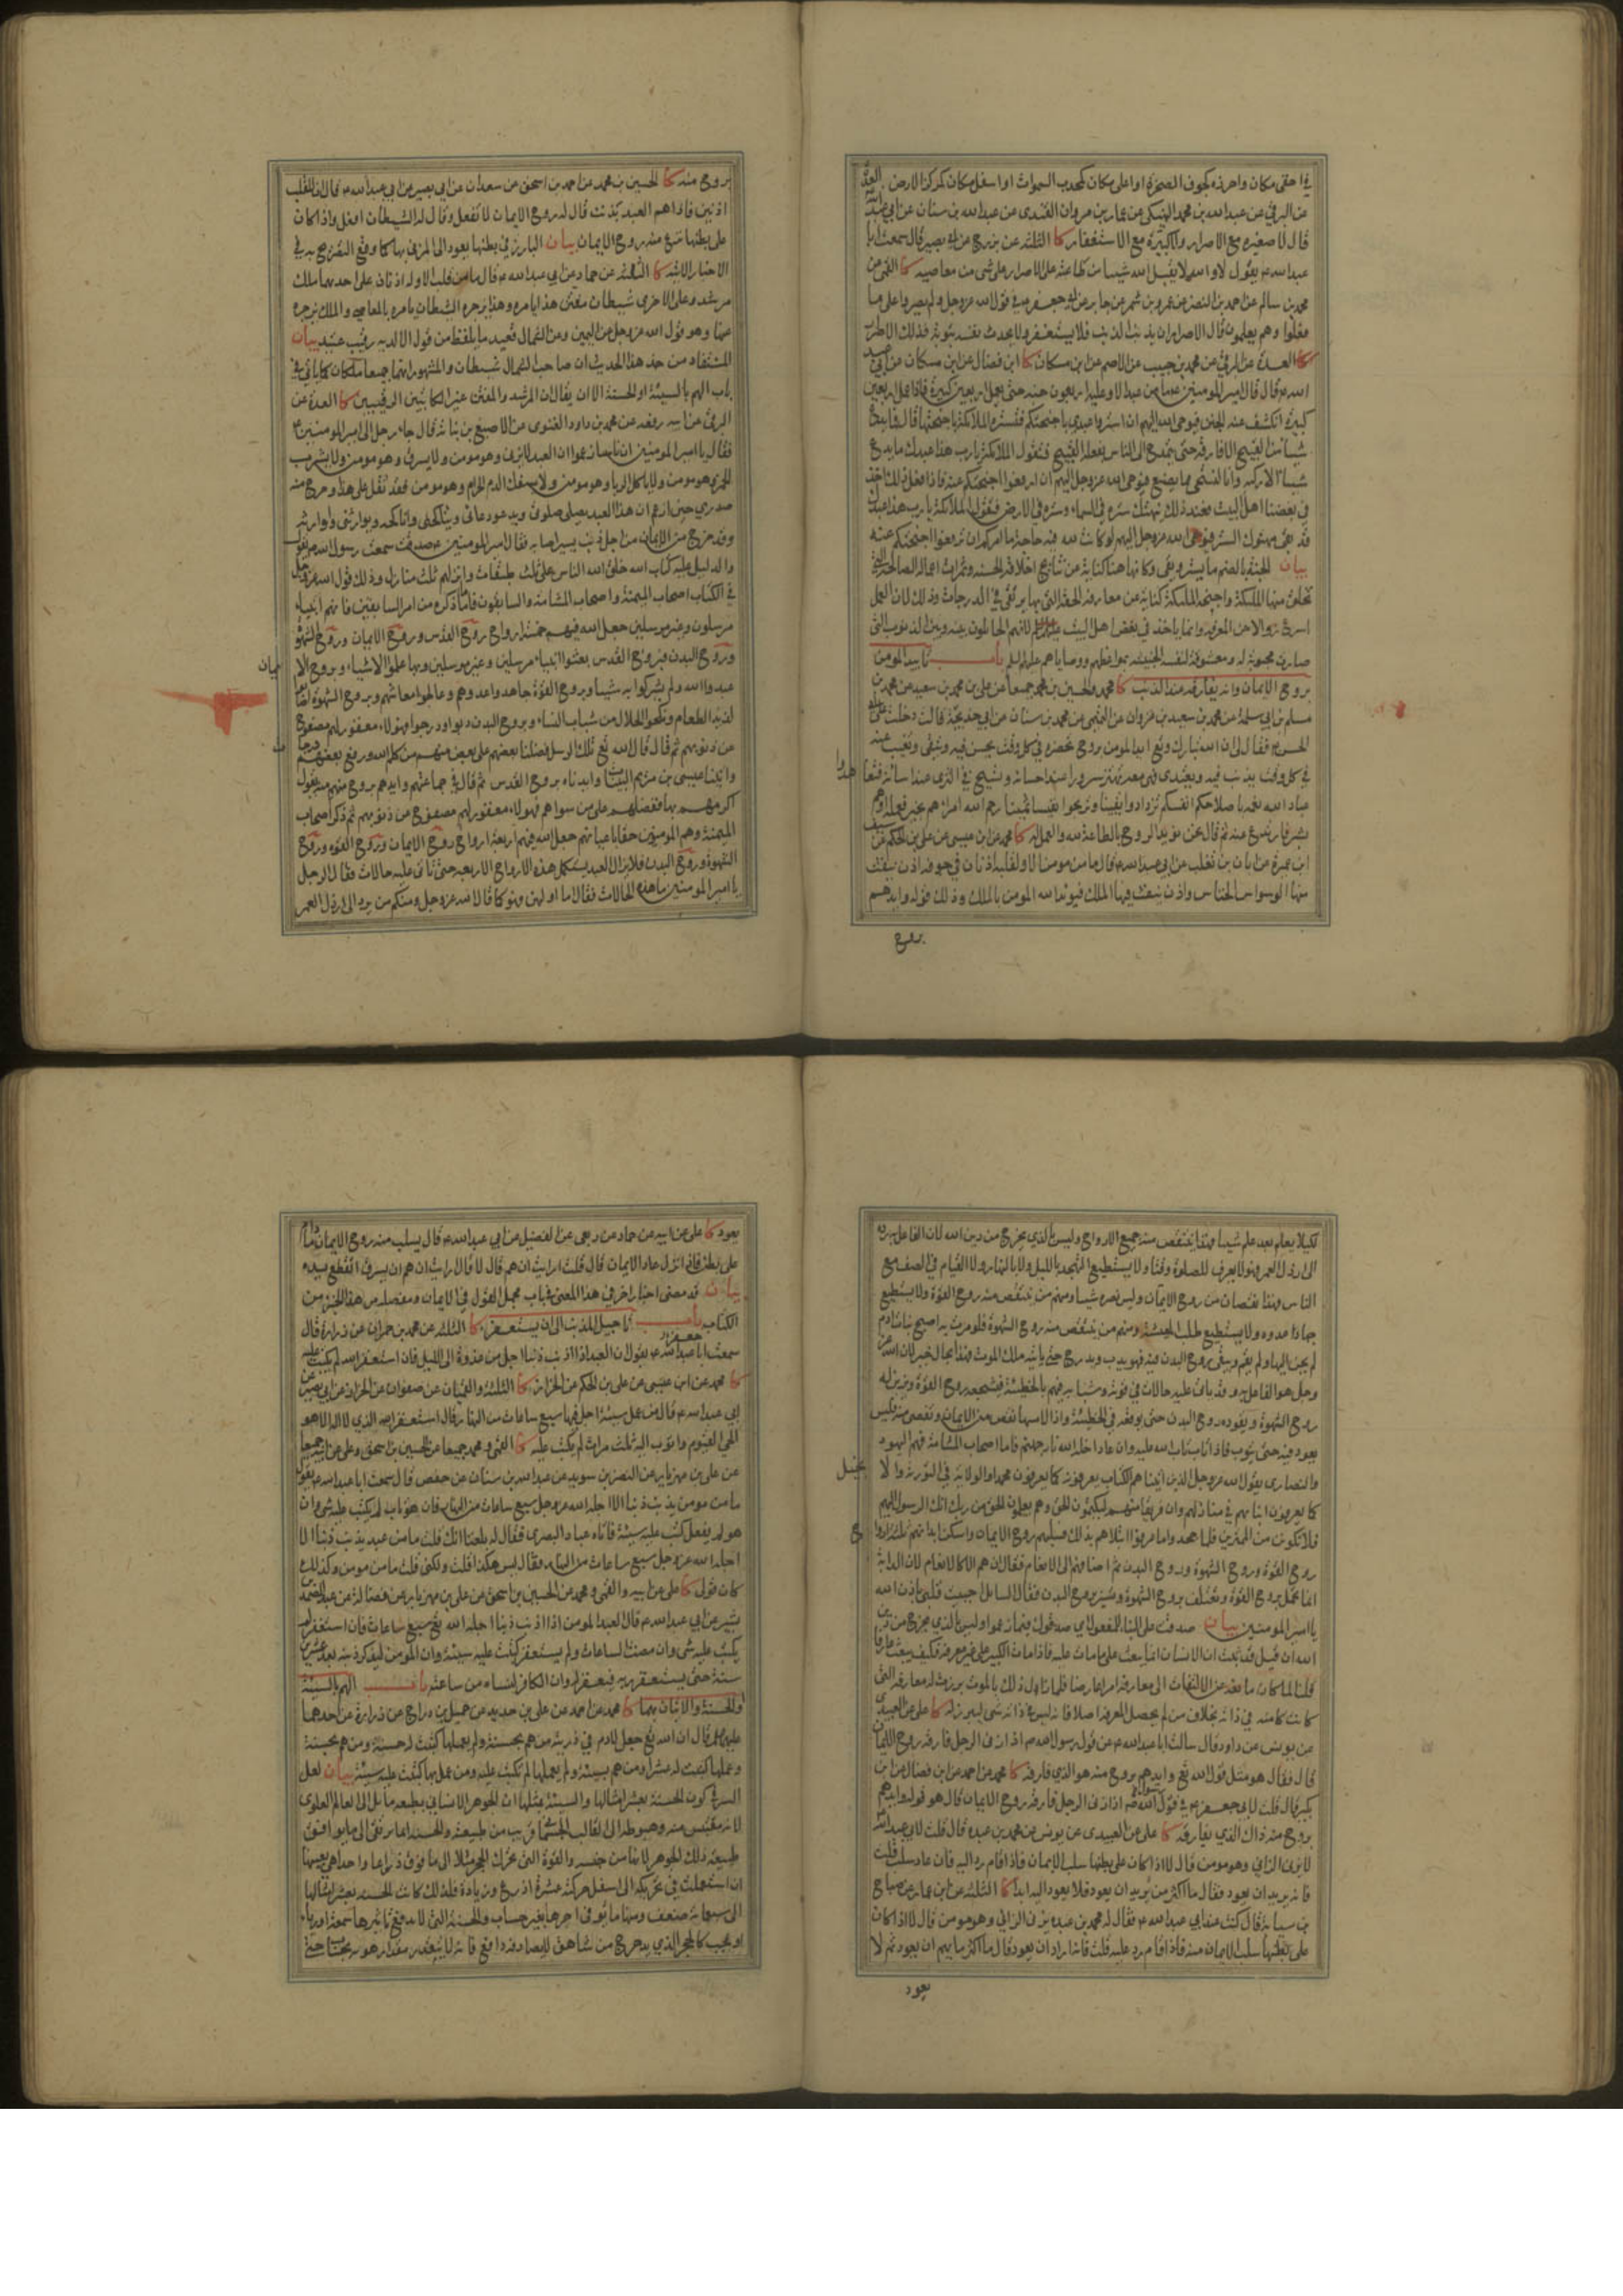 في احقى مكان واحرزه كجوف الصخرة او اعلى مكان كمحدب السموات او اسفل مكان كمركز الارض العدة
عن البرقي عن عبدالله بن محمد النهيكي عن عمار بن مروان القندى عن عبدالله بن سنان عن ابي عبدالله
قال لا صغيره مع الاصرار ولا كبيرة مع الاستغفار كا الثلثه عن بزرج عن ابي بصير قال سمعت ابا
عبدالله ع يقول لا والله لا يقبل الله شيئا من طاعته على الاصرار على شئ من معاصيه كا القمي عن
محمد بن سالم عن احمد بن النضر عن عمرو بن شمر عن جابر عن ابي جعفر ع في قول الله عزوجل ولم يصروا على ما
فعلوا وهم يعلمون قال الاصرار ان يذنب الذنب فلا يستغفر ولا يحدث نفسه بتوبة فذلك الاصرار
كا العدة عن البرقي عن محمد بن حبيب عن الاصم عن ابن مسكان كا ابن فضال عن ابن مسكان عن ابي عبد
الله ع قال قال امير المومنين ع ما من عبد الا وعليه اربعون جنه حتى يعمل اربعين كبيرة فاذا عمل اربعين
كبيرة انكشف عنه الجنن فيوحى الله اليهم ان استروا عبدى باجنحتكم فتستره الملائكة باجنحتها قال فما يدع
شيئا من القبيح الا قارفه حتى يمتدح الى الناس بفعله القبيح فتقول الملائكة يا رب هذا عبدك ما يدع
شيئا الا ركبه وانا لنستحى مما يصنع فيوحى الله عزوجل اليهم ان ارفعوا اجنحتكم عنه فاذا فعل ذلك اخذ
في بغضنا اهل البيت فعند ذلك ينهتك ستره في السماء وستره في الارض فتقول الملائكة يا رب هذا عبدك
قد بقى مهتوك الستر فيوحى الله عزوجل اليهم لو كانت لله فيه حاجة ما امركم ان ترفعوا اجنحتكم عنه
بيان الجنة بالضم ما يستر ويقى وكانها هنا كناية عن نتائج اخلاقه الحسنه وثمرات اعماله الصالحة التي
تخلق منها الملئكة واجنحة الملئكة كناية عن معارفه الحقة التي بها يرتقى في الدرجات وذلك لان العمل
اسرع زوالا من المعرفه وانما ياخذ في بغض اهل البيت لانهم الحائلون بينه وبين الذنوب التي
صارت محبوبة له ومعشوقة لنفسه الخبيثه بمواعظهم ووصاياهم عليهم السلم باب تاييد المومن
بروح الايمان وانه يفارقه عند الذنب كا محمد والحسين بن محمد جميعا عن علي بن محمد بن سعيد عن محمد بن
مسلم بن ابي سلمة عن محمد بن سعيد بن غزوان عن ابن ابي نجران عن محمد بن سنان عن ابي خديجة قال دخلت على
ابي الحسن ع فقال لي ان الله تبارك وتع ايد المومن بروح تحضره في كل وقت يحسن فيه ويتقى وتغيب عنه
في كل وقت يذنب فيه ويعتدى فهى معه تهتز سرورا عند احسانه وتسيخ في الثرى عند اسائته فتعاهدوا
عباد الله نعمه باصلاحكم انفسكم تزدادوا يقينا وتربحوا نفيسا ثمينا رحم الله امرءا هم بخير فعمله او هم
بشر فارتدع عنه ثم قال نحن نؤيد الروح بالطاعة لله والعمل له كا محمد عن ابن عيسى عن علي بن الحكم عن سيف
ابن عميرة عن ابان بن تغلب عن ابي عبدالله ع قال ما من مومن الا ولقلبه اذنان في جوفه اذن ينفث
فيها الوسواس الخناس واذن ينفث فيها الملك فيؤيد الله المومن بالملك وذلك قوله وايدهم
بروح
بروح منه كا الحسين بن محمد عن احمد بن اسحق عن سعدان عن ابي بصير عن ابي عبدالله ع قال ان للقلب
اذنين فاذا هم العبد بذنب قال له روح الايمان لا تفعل وقال له الشيطان افعل واذا كان
على بطنها نزع منه روح الايمان بيان البارز في بطنها يعود الى المزنى بها كما وقع التصريح به في
الاخبار الاتية كا الثلثه عن حماد عن ابي عبدالله ع قال ما من قلب الا وله اذنان على احدهما ملك
مرشد وعلى الاخرى شيطان مفتن هذا يامره وهذا يزجره الشيطان يامره بالمعاصي والملك يزجره
عنها وهو قول الله عزوجل عن اليمين وعن الشمال قعيد ما يلفظ من قول الا لديه رقيب عتيد بيان
المستفاد من هذا الحديث ان صاحب الشمال شيطان والمشهور انهما جميعا ملكان كما ياتي في
باب الهم بالسيئة او الحسنة الا ان يقال ان المرشد والمفتن غير الكاتبين الرقيبين كا العدة عن
البرقي عن ابيه رفعه عن محمد بن داود الغنوى عن الاصبغ بن نباته قال جاء رجل الى امير المومنين ع
فقال يا امير المومنين ان ناسا زعموا ان العبد لا يزنى وهو مومن ولا يسرق وهو مومن ولا يشرب
الخمر وهو مومن ولا ياكل الربا وهو مومن ولا يسفك الدم الحرام وهو مومن فقد ثقل على هذا وحرج منه
صدري حين ازعم ان هذا العبد يصلى صلوتى ويدعو دعائى ويناكحنى واناكحه ويوارثنى واوارثه
وقد خرج من الايمان من اجل ذنب يسير اصابه فقال امير المومنين ع صدقت سمعت رسول الله ص يقول
والدليل عليه كتاب الله خلق الله الناس على ثلث طبقات وانزلهم ثلث منازل وذلك قول الله عزوجل
في الكتاب اصحاب الميمنة واصحاب المشامة والسابقون فاما ما ذكره من امر السابقين فانهم انبياء
مرسلون وغير مرسلين جعل الله فيهم خمسة ارواح روح القدس وروح الايمان وروح القوة وروح الشهوة
وروح البدن فبروح القدس بعثوا انبياء مرسلين وغير مرسلين وبها علموا الاشياء وبروح الايمان
عبدوا الله ولم يشركوا به شيئا وبروح القوة جاهدوا عدوهم وعالجوا معاشهم وبروح الشهوة اصابوا
لذيذ الطعام ونكحوا الحلال من شباب النساء وبروح البدن دبوا ودرجوا فهؤلاء مغفور لهم مصفوح
عن ذنوبهم ثم قال قال الله تع تلك الرسل فضلنا بعضهم على بعض منهم من كلم الله ورفع بعضهم درجات
واتينا عيسى بن مريم البينات وايدناه بروح القدس ثم قال في جماعتهم وايدهم بروح منه يقول
اكرمهم بها ففضلهم على من سواهم فهؤلاء مغفور لهم مصفوح عن ذنوبهم ثم ذكر اصحاب
الميمنة وهم المومنون حقا باعيانهم جعل الله فيهم اربعة ارواح روح الايمان وروح القوة وروح
الشهوة وروح البدن فلا يزال العبد يستكمل هذه الارواح الاربعه حتى تاتى عليه حالات فقال الرجل
يا امير المومنين ما هذه الحالات فقال اما اولهن فهو كما قال الله عزوجل ومنكم من يرد الى ارذل العمر
لكيلا يعلم بعد علم شيئا فهذا ينتقص منه جميع الارواح وليس بالذي يخرج من دين الله لان الفاعل به رده
الى ارذل العمر فهو لا يعرف للصلوة وقتا ولا يستطيع التهجد بالليل ولا بالنهار ولا القيام في الصف مع
الناس فهذا نقصان من روح الايمان وليس يضره شيئا ومنهم من ينتقص منه روح القوة ولا يستطيع
جهاد عدوه ولا يستطيع طلب المعيشة ومنهم من ينتقص منه روح الشهوة فلو مرت به اصبح بنات ادم
لم يحن اليها ولم يقم ويبقى روح البدن فيه فهو يدب ويدرج حتى ياتيه ملك الموت فهذا بحال خير لان الله عز
وجل هو الفاعل به وقد ياتى عليه حالات في قوته وشبابه فيهم بالخطيئة فيشجعه روح القوة ويزين له
روح الشهوة ويقوده روح البدن حتى يوقعه في الخطيئة فاذا لامسها نقص من الايمان وتفصى منه فليس
يعود فيه حتى يتوب فاذا تاب تاب الله عليه وان عاد ادخله الله نار جهنم فاما اصحاب المشامة فهم اليهود
والنصارى يقول الله عزوجل الذين اتيناهم الكتاب يعرفونه كما يعرفون محمدا والولاية في التورية والانجيل
كما يعرفون ابناءهم في منازلهم وان فريقا منهم ليكتمون الحق وهم يعلمون الحق من ربك انك الرسول اليهم
فلا تكونن من الممترين فلما جحدوا ما عرفوا ابتلاهم بذلك فسلبهم روح الايمان واسكن ابدانهم ثلثة ارواح
روح القوة وروح الشهوة وروح البدن ثم اضافهم الى الانعام فقال ان هم الا كالانعام لان الدابة
انما تحمل بروح القوة وتعتلف بروح الشهوة وتسير بروح البدن فقال السائل احييت قلبى باذن الله
يا امير المومنين بيان صدقت على البناء للمفعول اي صدقوك فيما زعموا وليس بالذي يخرج من دين
الله ان قيل قد ثبت ان الانسان انما يبعث على ما مات عليه فاذا مات الكبير على غير معرفة فكيف يبعث عارفا
قلنا لما كان مانعه عن الالتفات الى معارفه امرا عارضا فلما زال ذلك بالموت برزت له معارفه التي
كانت كامنه في ذاته بخلاف من لم يحصل المعرفه اصلا فانه ليس في ذاته شئ ليبرز له كا علي عن العبيدى
عن يونس عن داود قال سالت ابا عبدالله ع عن قول رسول الله ص اذا زنى الرجل فارقه روح الايمان
قال فقال هو مثل قول الله تع وايدهم بروح منه هو الذي فارقه كا محمد عن احمد عن ابن فضال عن ابن
بكير قال قلت لابي جعفر ع في قول رسول الله ص اذا زنى الرجل فارقه روح الايمان قال هو قوله وايدهم
بروح منه ذاك الذي يفارقه كا علي عن العبيدى عن يونس عن محمد بن عبده قال قلت لابي عبدالله ع
لا يزنى الزاني وهو مومن قال لا اذا كان على بطنها سلب الايمان فاذا قام رد اليه فان عاد سلب قلت
فانه يريد ان يعود فقال ما اكثر من يريد ان يعود فلا يعود اليه ابدا كا الثلثه عن ابن عمار عن صباح
بن سيابة قال كنت عند ابي عبدالله ع فقال له محمد بن عبده يزنى الزاني وهو مومن قال لا اذا كان
على بطنها سلب الايمان منه فاذا قام رد عليه قلت فانه اراد ان يعود قال ما اكثر ما يهم ان يعود ثم لا
يعود
يعود كا علي عن ابيه عن حماد عن ربعى عن الفضيل عن ابي عبدالله ع قال يسلب منه روح الايمان ما دام
على بطنها فاذا نزل عاد الايمان قال قلت ارايت ان هم قال لا قال ارايت ان هم ان يسرق اتقطع يده
بيان قد مضى اخبار اخر في هذا المعنى في باب مجمل القول في الايمان ومفصله من هذا الجزء من
الكتاب باب تاجيل المذنب الى ان يستغفر كا الثلثه عن محمد بن حمران عن زرارة قال
سمعت ابا عبدالله ع يقول ان العبد اذا اذنب ذنبا اجل من غدوة الى الليل فان استغفر الله لم يكتب عليه
كا محمد عن ابن عيسى عن علي بن الحكم عن الخزاز كا الثلثة والقميان عن صفوان عن الخزاز عن ابي بصير عن
ابي عبدالله ع قال من عمل سيئة اجل فيها سبع ساعات من النهار فان قال استغفر الله الذي لا اله الا هو
الحي القيوم واتوب اليه ثلث مرات لم يكتب عليه كا القمي ومحمد جميعا عن الحسين بن اسحق وعلي عن ابيه جميعا
عن علي بن مهزيار عن النضر بن سويد عن عبدالله بن سنان عن حفص قال سمعت ابا عبدالله ع يقول
ما من مومن يذنب ذنبا الا اجله الله عزوجل سبع ساعات من النهار فان هو تاب لم يكتب عليه شئ وان
هو لم يفعل كتب عليه سيئة فاتاه عباد البصرى فقال له بلغنا انك قلت ما من عبد يذنب ذنبا الا
اجله الله عزوجل سبع ساعات من النهار فقال ليس هكذا قلت ولكنى قلت ما من مومن وكذلك
كان قولى كا علي عن ابيه والقمي ومحمد عن الحسين بن اسحق عن علي بن مهزيار عن فضالة عن عبدالصمد بن
بشير عن ابي عبدالله ع قال العبد المومن اذا اذنب ذنبا اجله الله تع سبع ساعات فان استغفر لم
يكتب عليه شئ وان مضت الساعات ولم يستغفر كتبت عليه سيئة وان المومن ليذكر ذنبه بعد عشرين
سنة حتى يستغفر ربه فيغفر له وان الكافر لينساه من ساعته باب الهم بالسيئة
والحسنة والاتيان بهما كا محمد عن احمد عن علي بن حديد عن جميل بن دراج عن زرارة عن احدهما
عليهما السلم قال ان الله تع جعل لادم في ذريته من هم بحسنة ولم يعملها كتبت له حسنة ومن هم بحسنة
وعملها كتبت له عشرا ومن هم بسيئة ولم يعملها لم تكتب عليه ومن عمل بها كتبت عليه سيئة بيان لعل
السر في كون الحسنة بعشر امثالها والسيئة بمثلها ان الجوهر الانساني بطبعه مائل الى العالم العلوى
لانه مقتبس منه وهبوطه الى القالب الجسمانى غريب من طبيعته والحسنة انما يرتقى الى ما يوافق
طبيعة ذلك الجوهر لانها من جنسه والقوة التي تحرك الحجر مثلا الى ما فوق ذراعا واحدا هي بعينها
ان استعملت في تحريكه الى اسفل حركته عشرة اذرع وزيادة فلذلك كانت الحسنة بعشر امثالها
الى سبعمائة ضعف ومنها ما يوفى اجرها بغير حساب والحسنة التي لا يدفع تاثيرها سمعة او رياء
او عجب كالحجر الذي يدحرج من شاهق لا يصادفه دافع فانه لا يتقدر مقدار هويه بحساب حتى